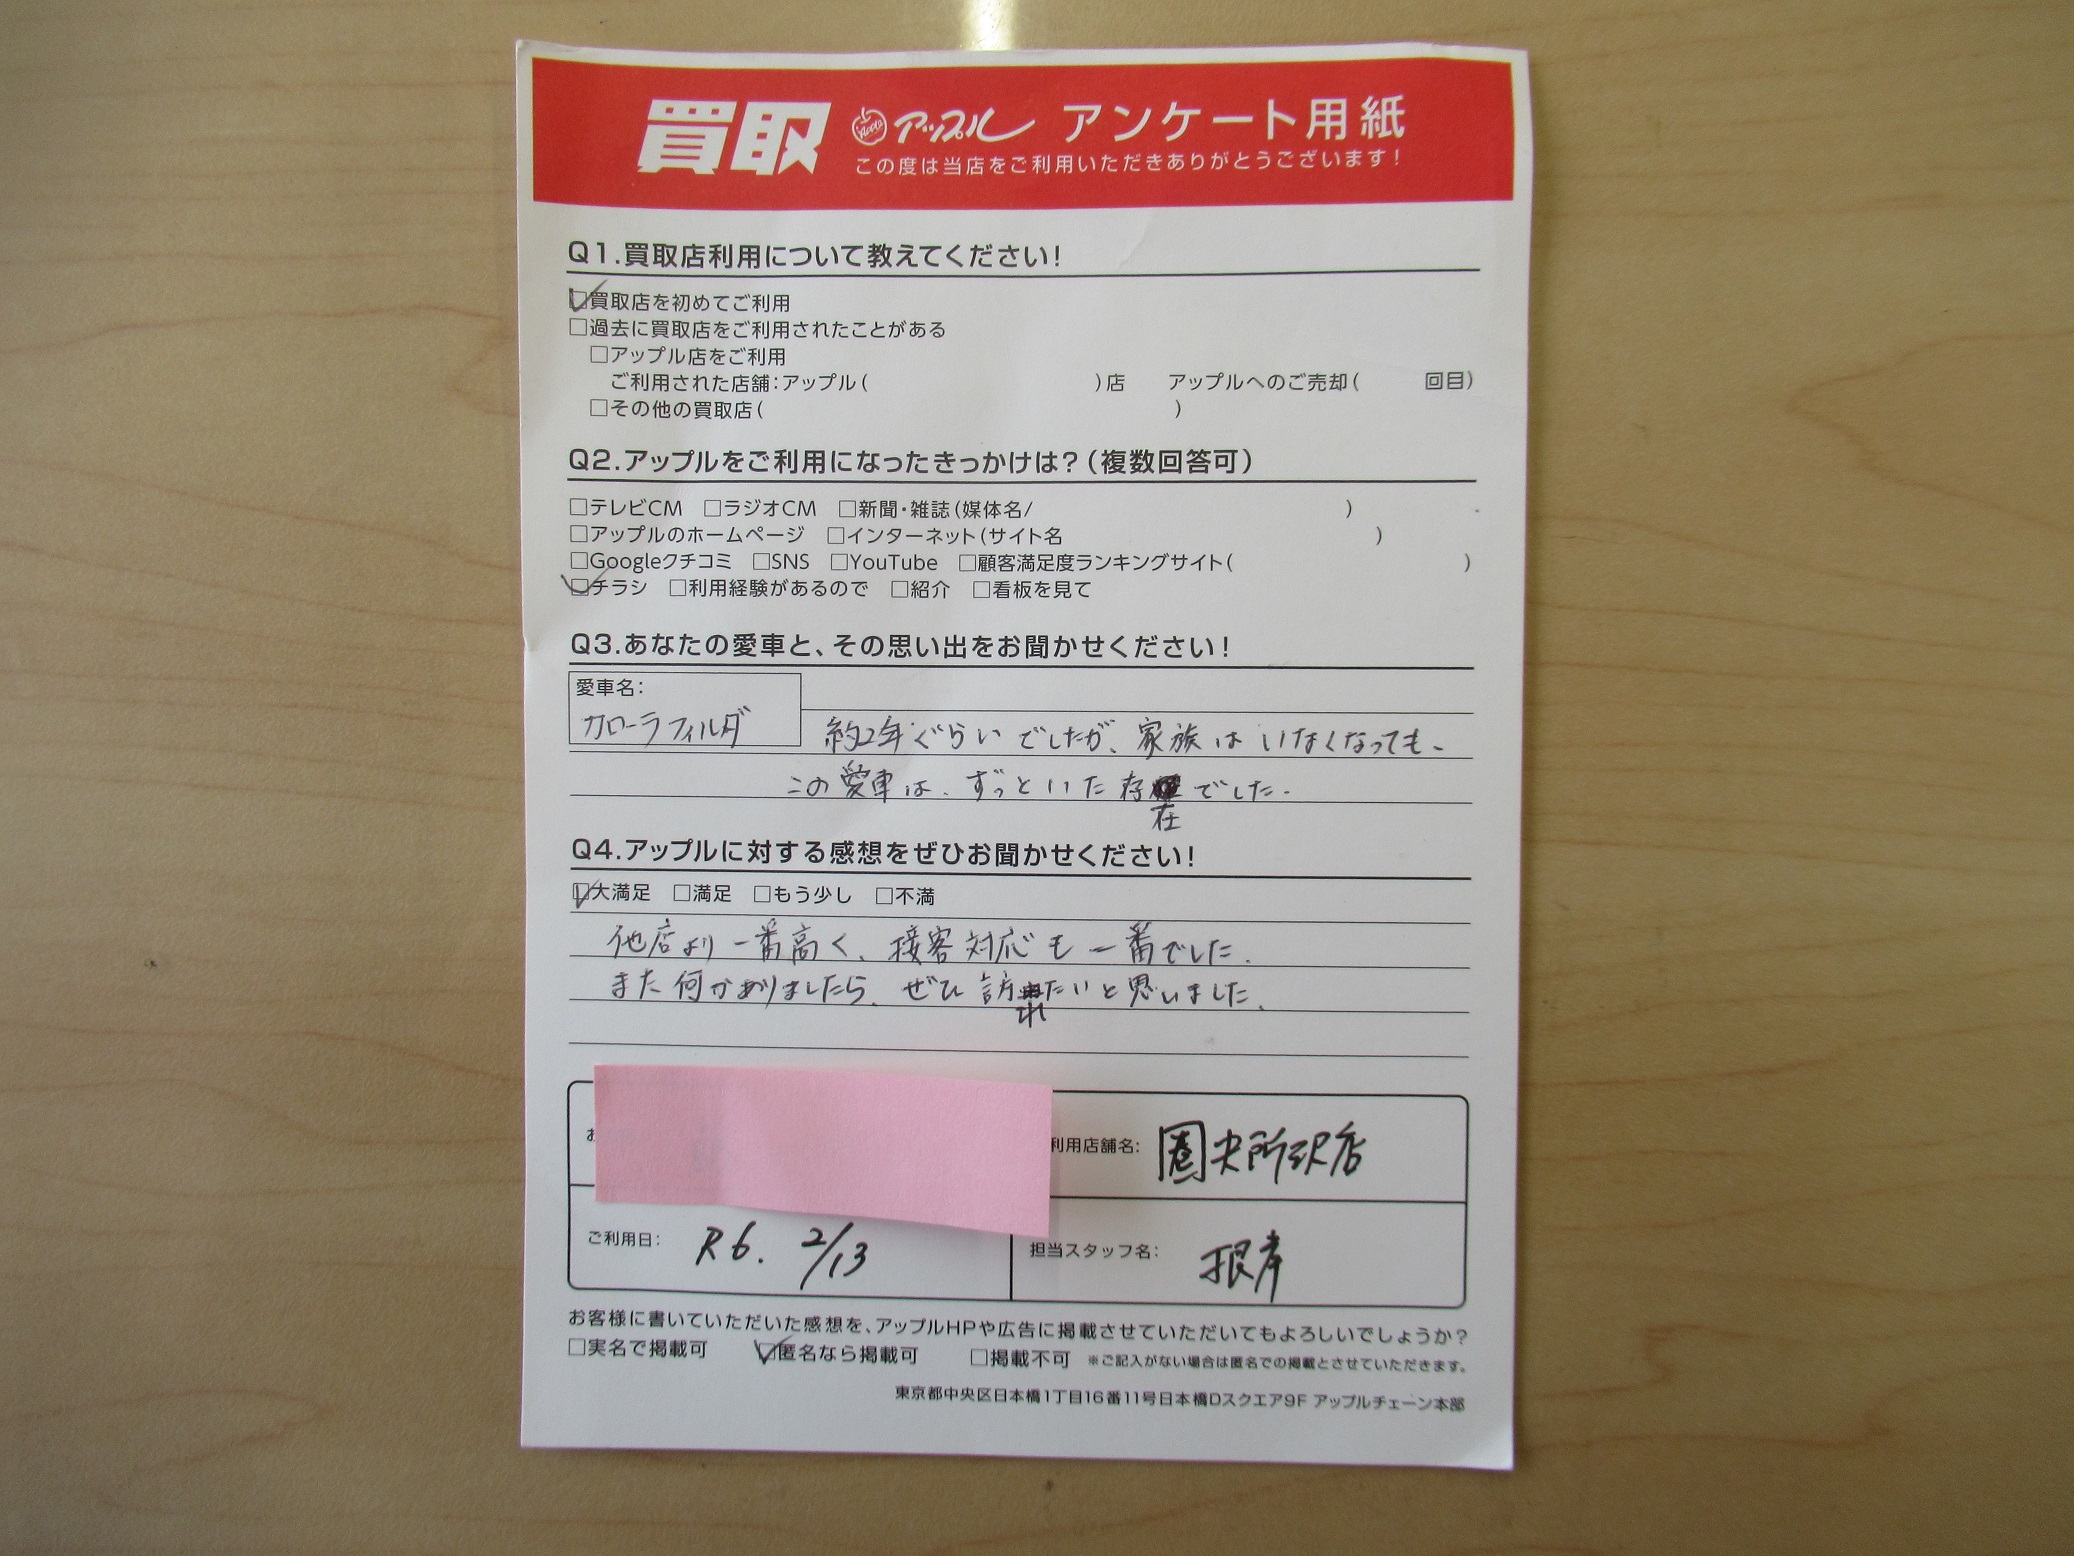 買取 Apple アップル アンケート用紙
この度は当店をご利用いただきありがとうございます!
Q1.買取店利用について教えてください!
□買取店を初めてご利用
□過去に買取店をご利用されたことがある
□アップル店をご利用
ご利用された店舗:アップル( )店 アップルへのご売却( 回目)
□その他の買取店( )
Q2.アップルをご利用になったきっかけは?(複数回答可)
□テレビCM □ラジオCM □新聞・雑誌(媒体名/ )
□アップルのホームページ □インターネット(サイト名 )
□Googleクチコミ □SNS □YouTube □顧客満足度ランキングサイト( )
□チラシ □利用経験があるので □紹介 □看板を見て
Q3.あなたの愛車と、その思い出をお聞かせください!
愛車名:
カローラフィルダ
約2年ぐらいでしたが、家族はいなくなっても、
この愛車は、ずっといた存在でした.
Q4.アップルに対する感想をぜひお聞かせください!
□大満足 □満足 □もう少し □不満
他店より一番高く、接客対応も一番でした.
また何かありましたら、ぜひ訪れたいと思いました、
利用店舗名: 圏央所沢店
ご利用日: R6. 2/13
担当スタッフ名: 根岸
お客様に書いていただいた感想を、アップルHPや広告に掲載させていただいてもよろしいでしょうか?
□実名で掲載可 □匿名なら掲載可 □掲載不可 ※ご記入がない場合は匿名での掲載とさせていただきます。
東京都中央区日本橋1丁目16番11号日本橋Dスクエア9F アップルチェーン本部